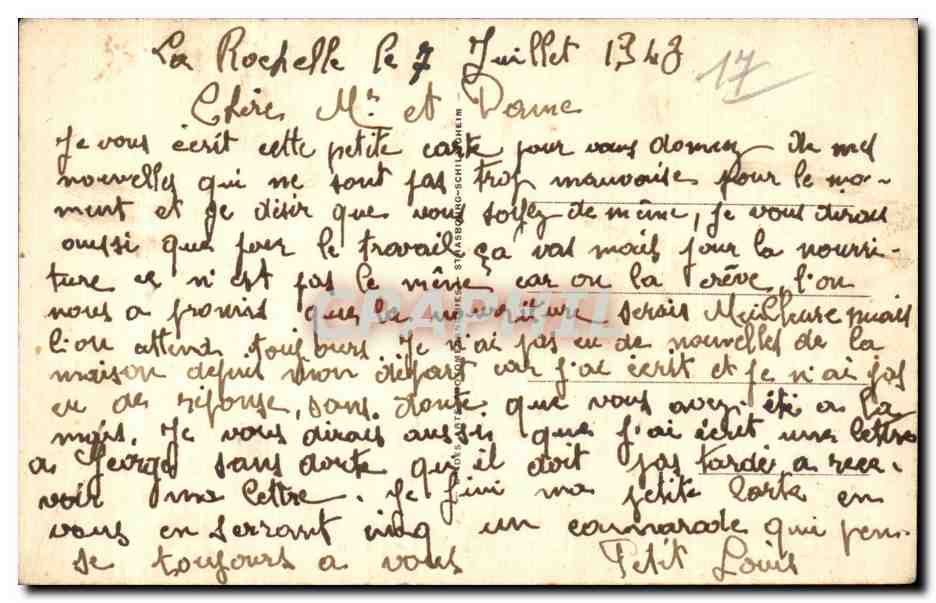 La Rochelle le 7 Juillet 1943
17
Chère Mr et Dame
Je vous écrit cette petite carte pour vous donnez de mes
nouvelles qui ne sont pas trop mauvaise pour le mo-
ment et je désir que vous soyez de même, je vous dirais
aussi que pour le travail ça vas mais pour la nourri-
ture ce n'est pas le même car on la crève, l'on
nous a promis que la nourriture serais Meilleure mais
l'on attend toujours. Je n'ai pas eu de nouvelles de la
maison depuis mon départ car j'ai écrit et je n'ai pas
eu de réponse, sans doute que vous avez été a la
mais. Je vous dirais aussi que j'ai écrit une lettre
a George sans doute qu'il doit pas tardé a rece-
voir ma lettre. Je fini ma petite carte en
vous en serrant cinq un cammarade qui pen-
se toujours a vous Petit Louis
CPARAMA
STRASBOURG-SCHILTIGHEIM